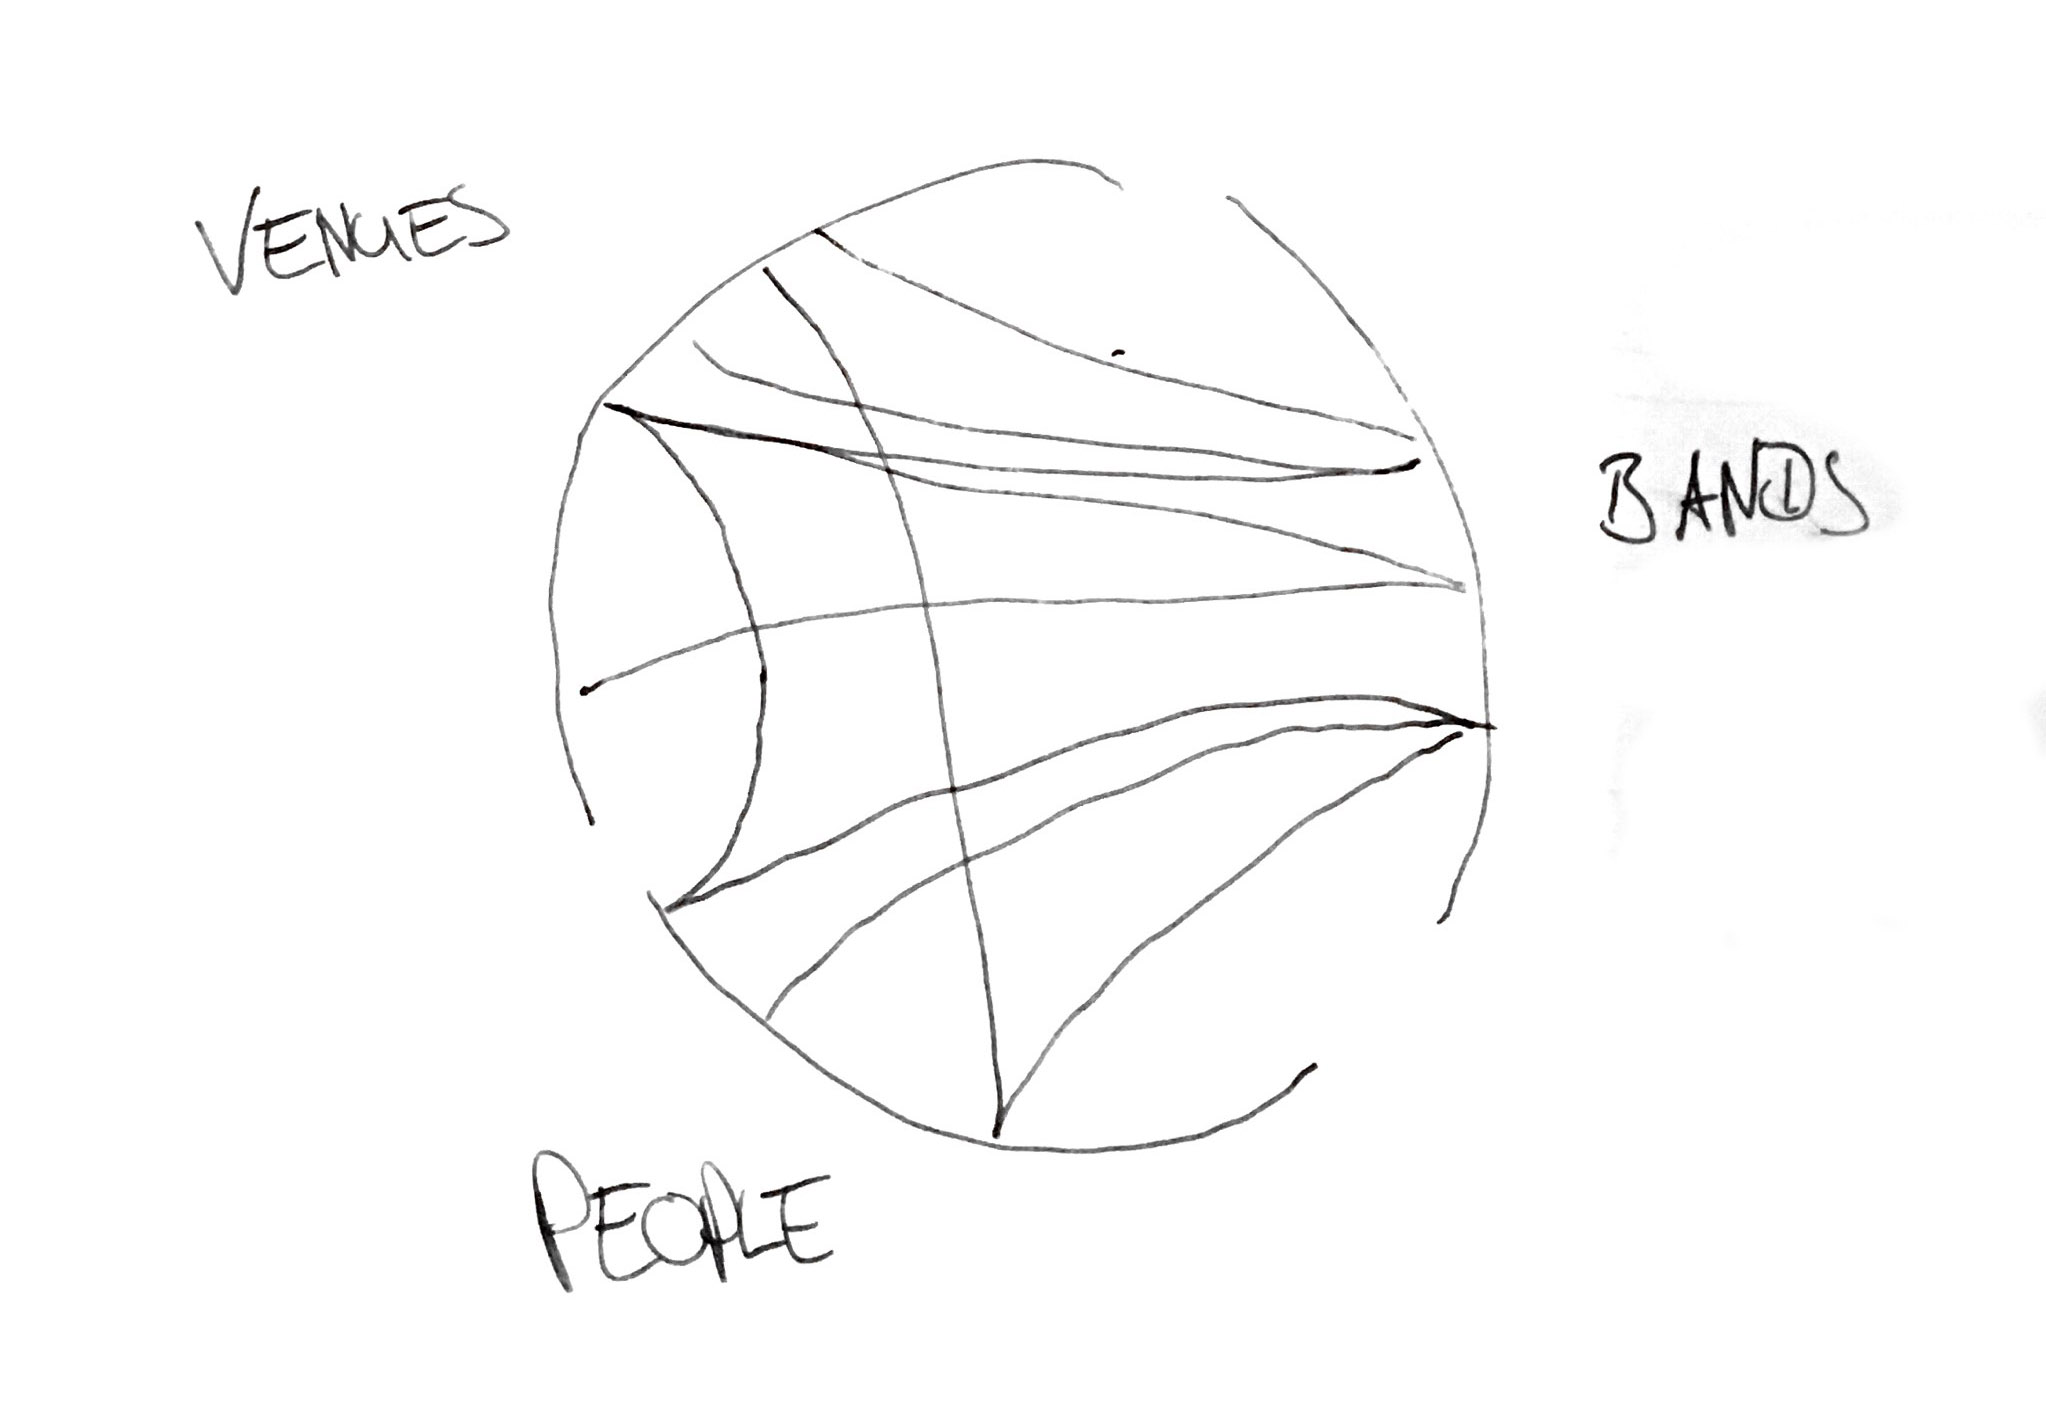 VENUES
BANDS
PEOPLE